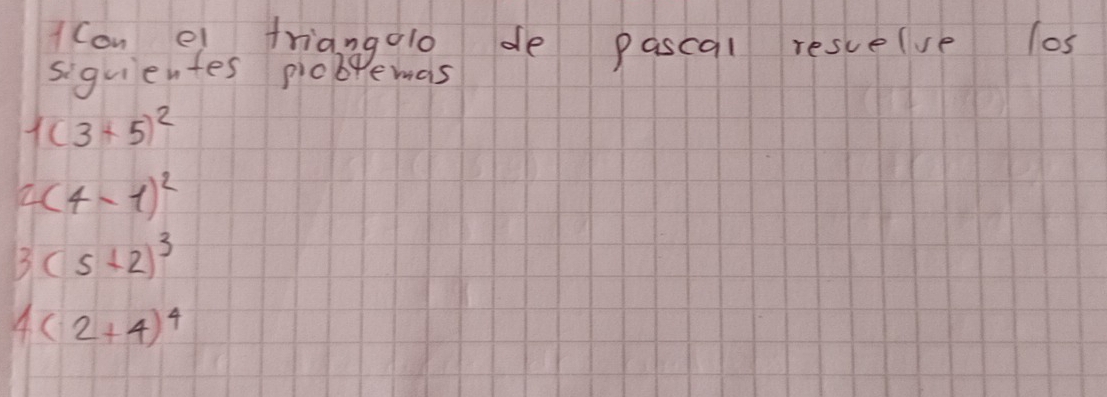 1 Con el triangulo de pascal resuelve los
siguientes problemas
1 (3 + 5)²
2 (4 - 1)²
3 (5 + 2)³
4 (2 + 4)⁴